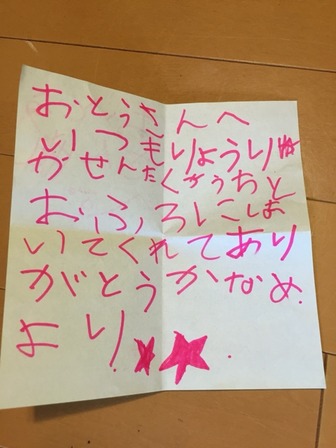 おとうさんへ
いつもりょうり
がせんたくがうちと
おふろにこしお
いてくれてあり
がとうかなめ
より